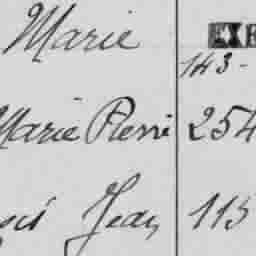 Marie EXE
143-
Marie Pierre 254
Jean 115